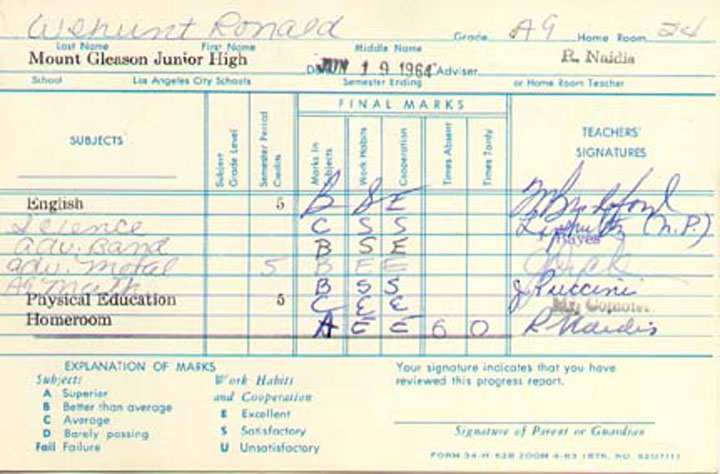 Wehunt Ronald Grade A9 Home Room 24
Last Name First Name Middle Name
Mount Gleason Junior High JUN 19 1964 Adviser R. Naidis
School Los Angeles City Schools Semester Ending or Home Room Teacher
FINAL MARKS
SUBJECTS Subject Grade Level Semester Period Credits Marks in Subjects Work Habits Cooperation Times Absent Times Tardy TEACHERS' SIGNATURES
English 5 B S E
Science C S S (N.P.)
Adv. Band B S E Hayes
Adv. Metal 5 B E E
A9 Math B S S J Puccini
Physical Education 5 C E E Mr.
Homeroom A E E 6 0 R Naidis
EXPLANATION OF MARKS
Subject:
A Superior
B Better than average
C Average
D Barely passing
Fail Failure
Work Habits
and Cooperation
E Excellent
S Satisfactory
U Unsatisfactory
Your signature indicates that you have
reviewed this progress report.
Signature of Parent or Guardian
FORM 34-H-62B 200M 4-63 (STK. NO.